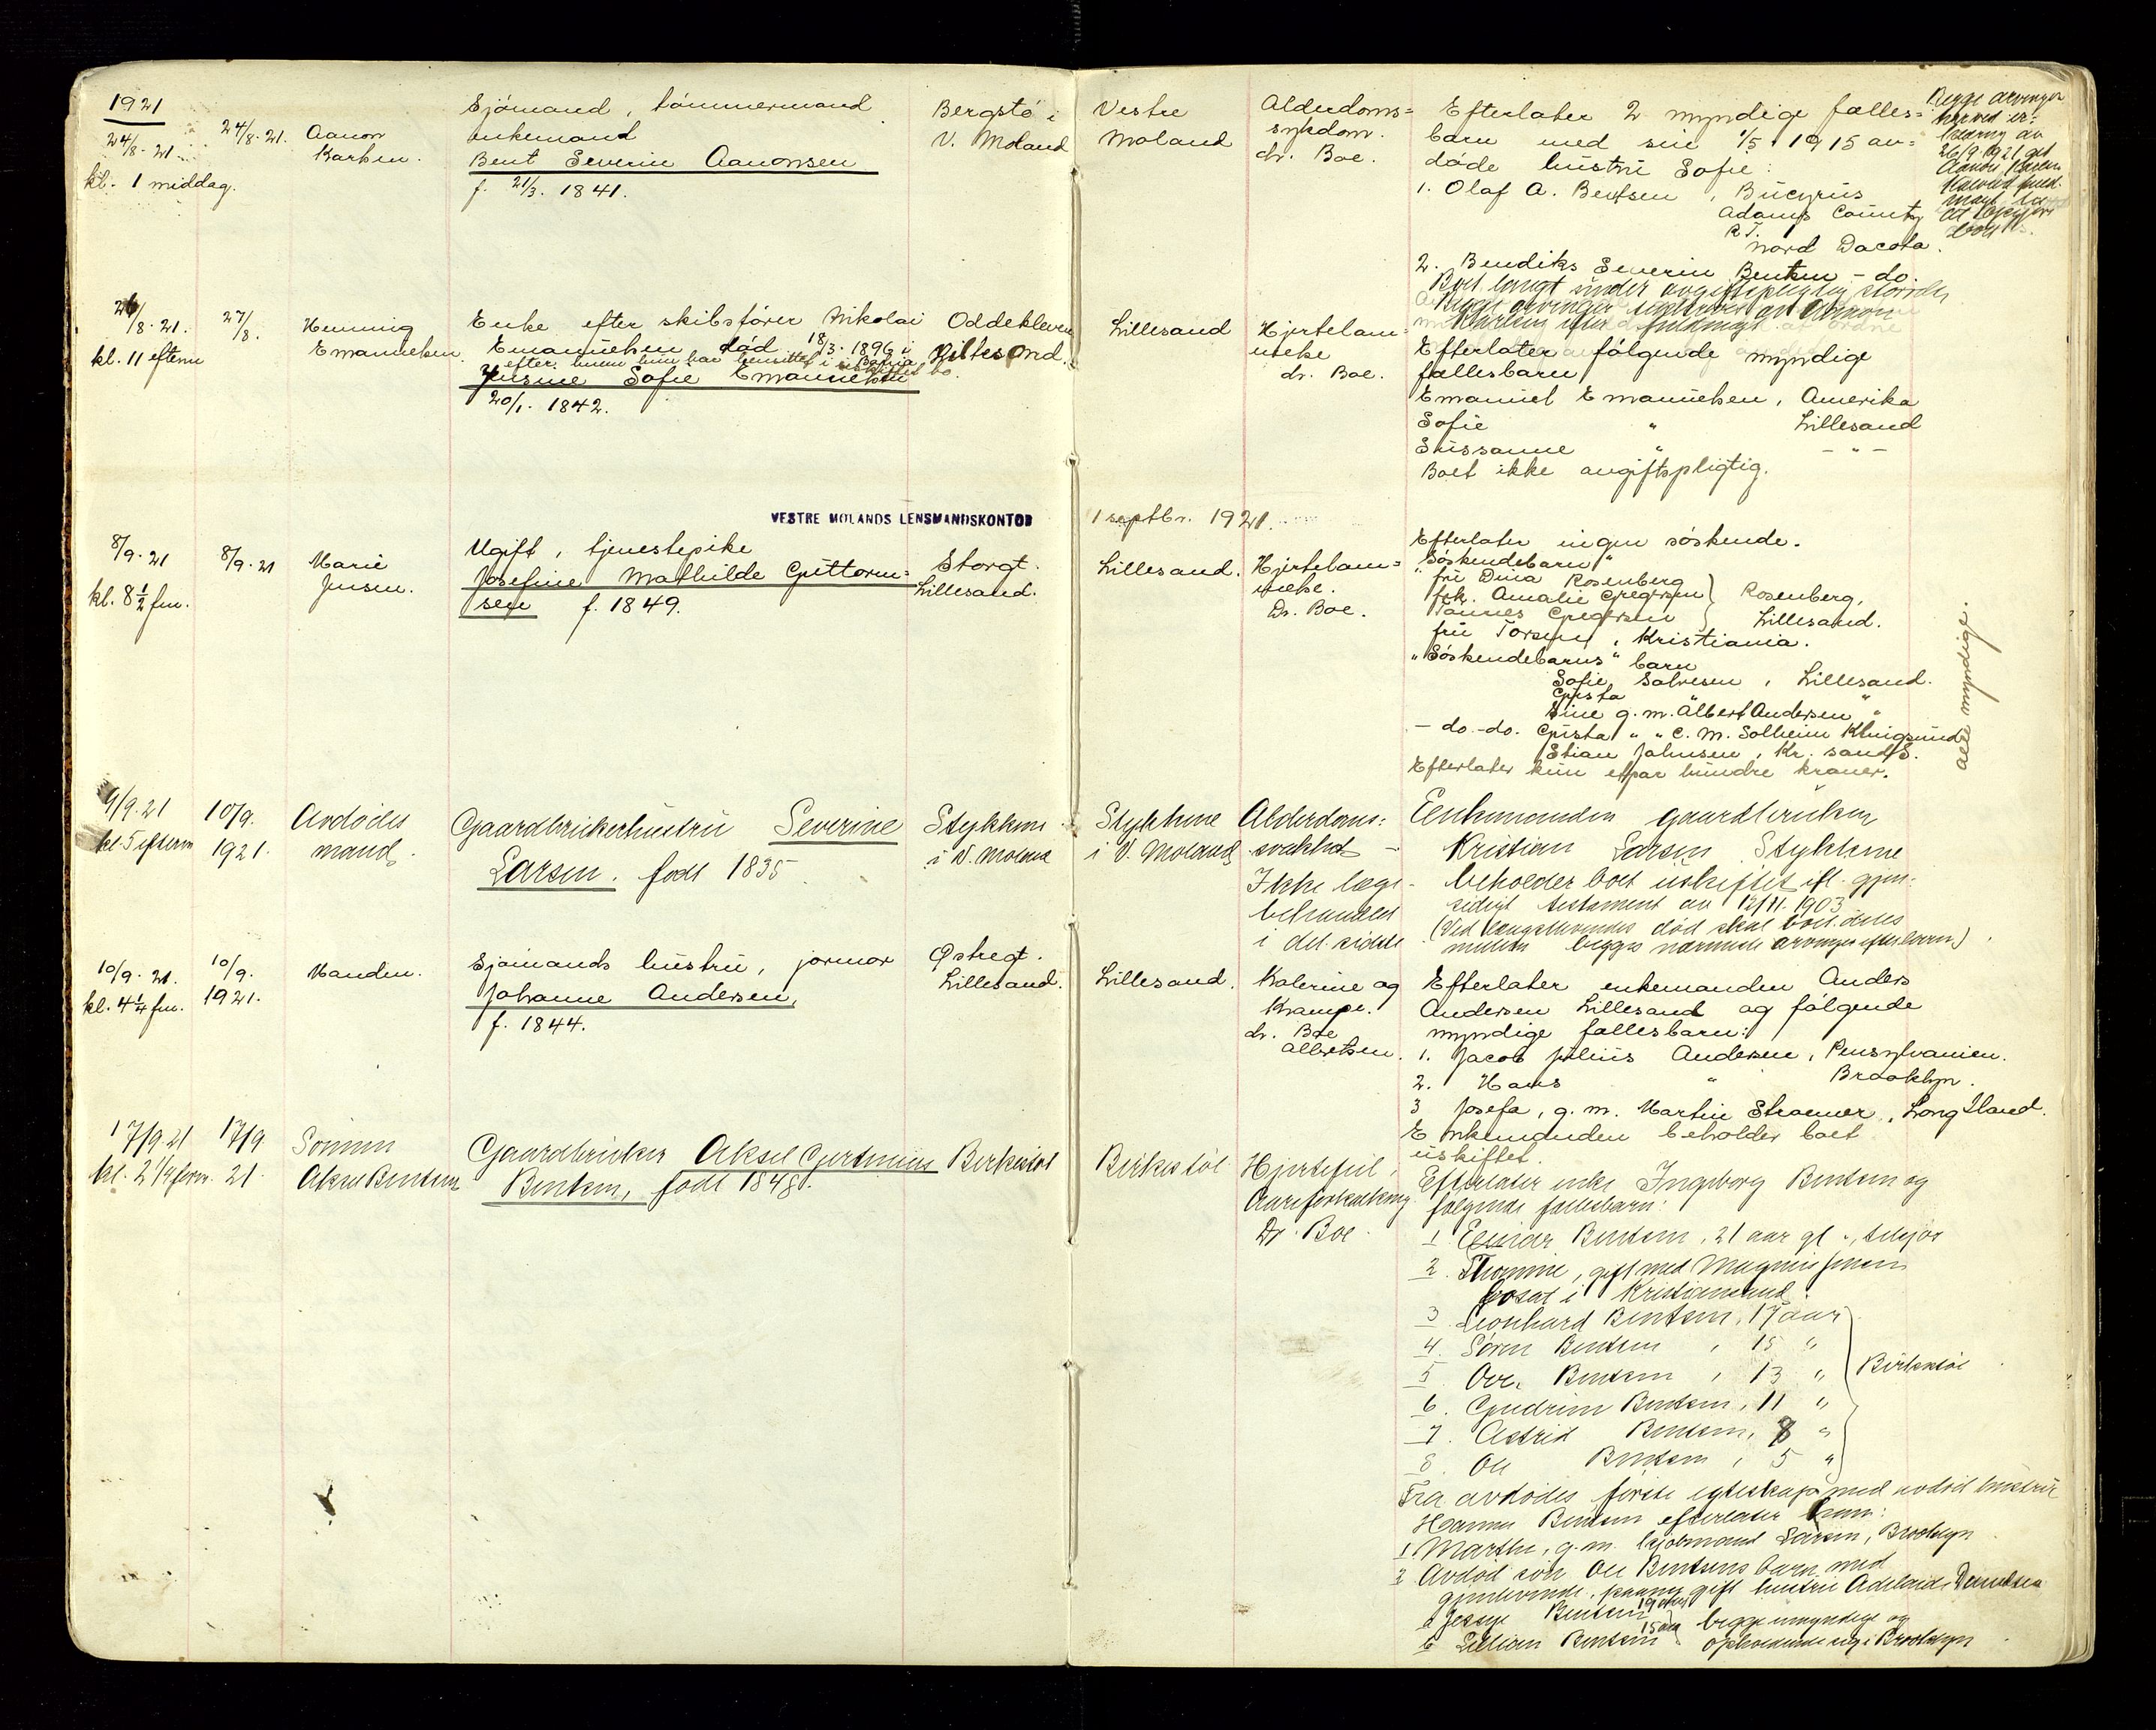 1921
24/8-21
kl. 1 middag.
24/8-21.
Aanon
Karlsen.
Sjömand, tömmermand
enkemand
Bent Severin Aanonsen
f. 21/3. 1841.
Bergstö i
V. Moland
Vestre
Moland
Alderdoms=
sykdom.
dr. Boe.
Efterlater 2 myndige fælles=
barn med sin 1/5 1915 av=
döde hustru Sofie:
1. Olaf A. Bentsen, Bucyrus
Adams County
R T.
Nord Dacota.
2. Bendiks Severin Bentsen - do.
Boet langt under avgiftspligtig störrelse
Begge arvinger
26/9 1921
26/8-21.
kl. 11 efterm
27/8.
Henning
Emanuelsen.
Enke efter skibsförer Nikolai
Emanuelsen död 18/3-1896 i
efter hvem hun har hensittet i uskiftet bo.
Sofie Emanuelsen
20/1. 1842.
Oddekleven
Lillesand.
Lillesand
Hjertelam=
melse
dr. Boe.
Efterlater fölgende myndige
fællesbarn
Emanuel Emanuelsen, Amerika
Sofie " Lillesand
Sussanne " - " -
Boet ikke avgiftspligtig.
VESTRE MOLANDS LENSMANDSKONTOR
1 septbr. 1921.
8/9-21
kl. 8½ fm.
8/9-21
Marie
Jensen.
Ugift, tjenestepike
Josefine Mathilde Guttorm=
sen f. 1849.
Storgt.
Lillesand.
Lillesand.
Hjertelam=
melse.
Dr. Boe.
Efterlater ingen söskende.
"Söskendebarn"
fru Dina Rosenberg
frk. Amalie Gregersen } Rosenberg,
Tönnes Gregersen } Lillesand.
fru Torsen, Kristiania.
"Söskendebarns" barn
Sofie Salvesen, Lillesand.
Gusta " "
Sine g.m. Albert Andersen "
- do.-do. Gusta " " C. M. Solheim
Stian Jahnsen, Kr. sand S.
Efterlater kun etpar hundre kroner.
alle myndige.
9/9.21
kl. 5 efterm
10/9.
1921.
Avdödes
mand.
Gaardbrukerhustru Severine
Larsen. född 1835
Stykkene
i V. Moland
Stykkene
i V. Moland
Alderdoms=
svakhet -
Ikke læge-
behandlet
i det sidste
Enkemanden gaardbruker
Kristian Larsen Stykkene
beholder boet uskiftet ifl. gjen=
sidigt testament av 12/11. 1903
(Ved længstlevendes död skal boet deles
mellem begges nærmeste arvinger efter loven).
10/9-21.
kl. 4¼ fm.
10/9.
1921.
Manden.
Sjömands hustru, jormor
Johanne Andersen,
f. 1844.
Östregt.
Lillesand.
Lillesand.
Kolerine og
Krampe.
dr. Boe
Albretsen.
Efterlater enkemanden Anders
Andersen Lillesand og fölgende
myndige fællesbarn:
1. Jacob Julius Andersen, Pensylvanien.
2. Hans " Brooklyn.
3 Josefa, g.m. Martin Stroemer, Long Iland.
Enkemanden beholder boet
uskiftet.
17/9.21
kl. 2¼ form.
17/9
21.
Sönnen
Aksel Bentsen
Gaardbruker Aksel Gertinius
Bentsen, född 1848.
Birkestöl
Birkestöl
Hjertefeil,
Aareforkalkning
Dr. Boe
Efterlater enke Ingeborg Bentsen og
fölgende fællesbarn:
1 Einar Bentsen, 21 aar gl., tilsjös
2. Thomine, gift med Magnus Jensen
bosat i Kristiansand.
3 Leonhard Bentsen, 17 aar
4. Sören Bentsen, 15 "
5 Ove Bentsen, 13 "
6. Gudrun Bentsen, 11 "
7. Astrid Bentsen, 8 "
8. Ole Bentsen, 5 "
Birkestöl
Fra avdödes förste egteskap med avdöd hustru
Hanna Bentsen efterlater han:
1 Marthe, g.m. Larsen, Brooklyn
2 Avdöd sön Ole Bentsens barn med
gjenlevende, paany gift hustru Adelaide Danielsen
a Jessye Bentsen 19 aar
b Lillian Bentsen 15 aar } begge umyndige og
opholdende sig i Brooklyn